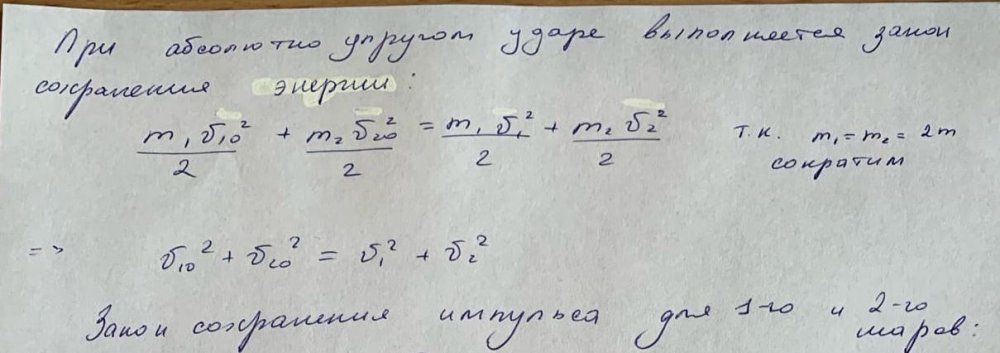 При абсолютно упругом ударе выполняется закон
сохранения энергии:
m₁υ₁₀²/2 + m₂υ₂₀²/2 = m₁υ₁²/2 + m₂υ₂²/2 т.к. m₁ = m₂ = 2m
сократим
=> υ₁₀² + υ₂₀² = υ₁² + υ₂²
Закон сохранения импульса для 1-го и 2-го
шаров: